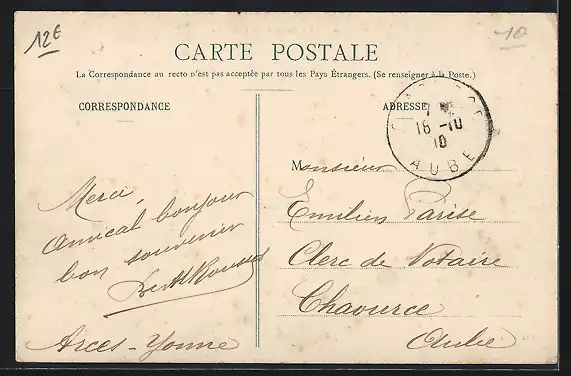 12€
10
CARTE POSTALE
La Correspondance au recto n'est pas acceptée par tous les Pays Étrangers. (Se renseigner à la Poste.)
CORRESPONDANCE
ADRESSE
16 -10
10
AUBE
Merci,
amical bonjour
bon souvenir
Arces - Yonne
Monsieur
Emilien Parise
Clerc de Notaire
Chaource
Aube